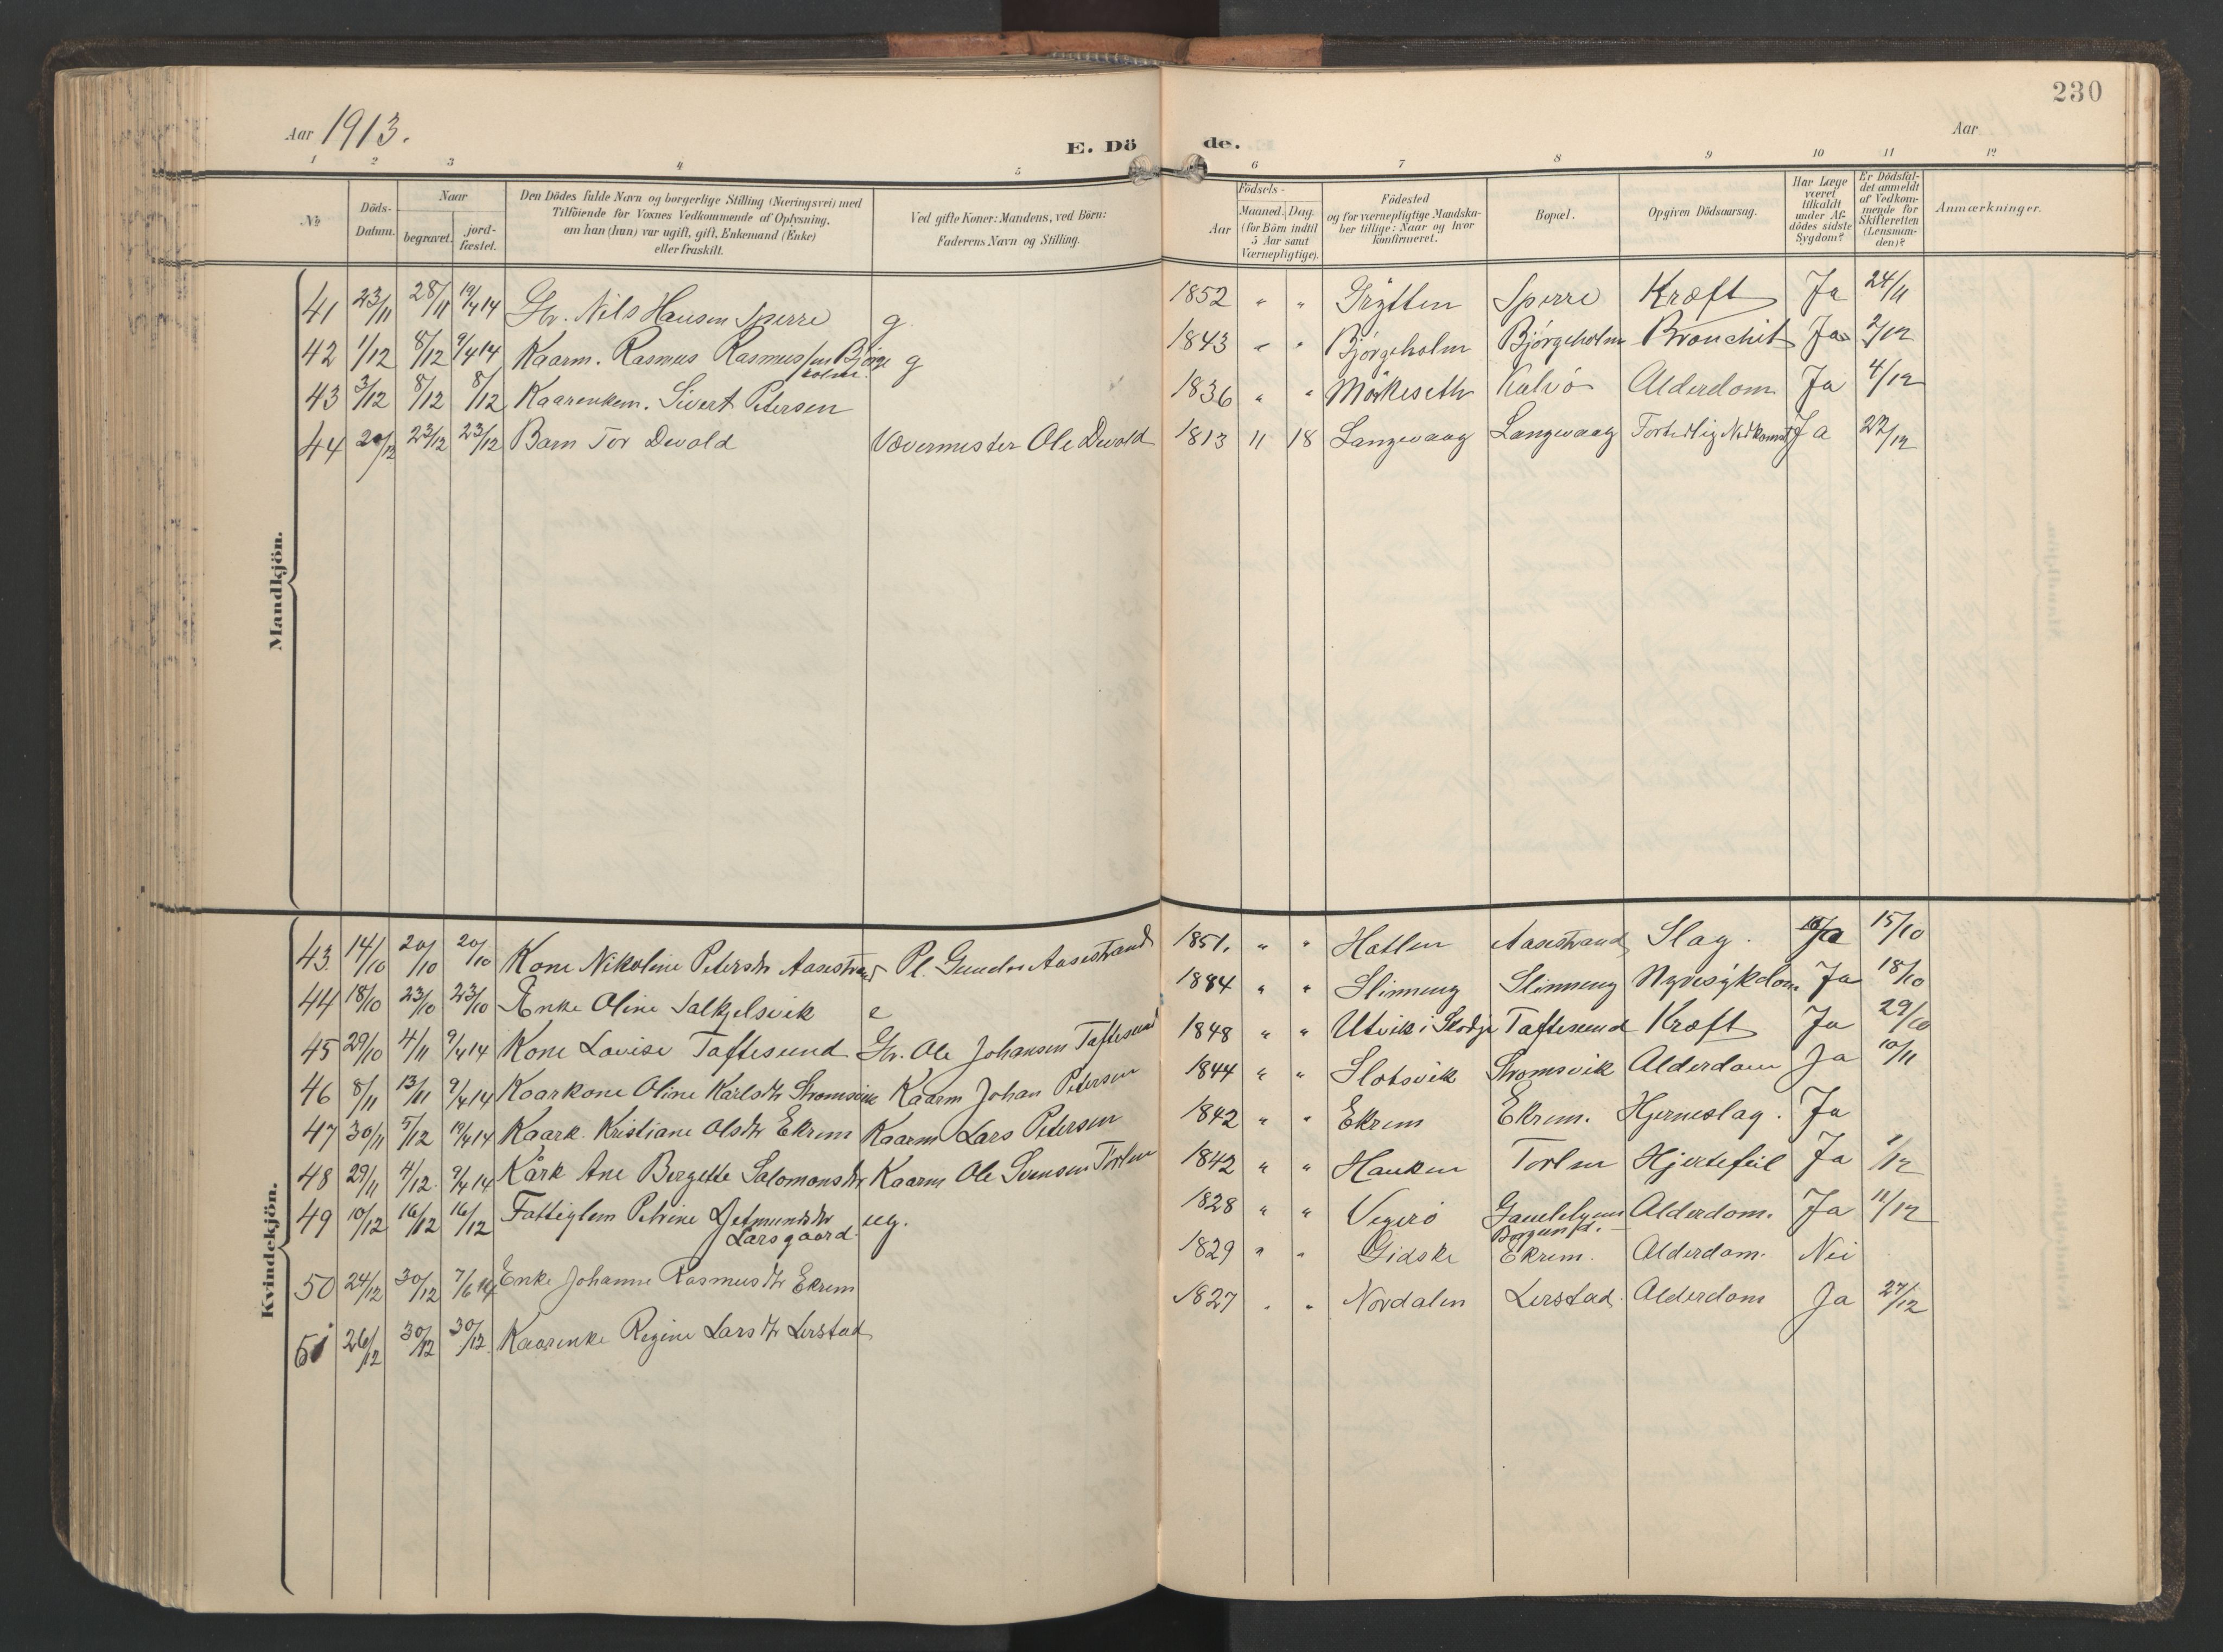 230
Aar 1913.
E. Döde.
Aar
1 2 3 4 5 6 7 8 9 10 11 12
No.
Döds-Datum.
Naar
begravet.
jord-fæstet.
Den Dödes fulde Navn og borgerlige Stilling (Næringsvei) med
Tilföiende for Voxnes Vedkommende af Oplysning,
om han (hun) var ugift, gift, Enkemand (Enke)
eller fraskilt.
Ved gifte Koner: Mandens, ved Börn:
Faderens Navn og Stilling.
Födsels-
Aar
Maaned. Dag.
(for Börn indtil
5 Aar samt
Værnepligtige).
Födested
og for værnepligtige Mandska-
ber tillige: Naar og hvor
konfirmeret.
Bopæl.
Opgiven Dödsaarsag.
Har Læge
været
tilkaldt
under Af-
dödes sidste
Sygdom?
Er Dödsfal-
det anmeldt
af Vedkom-
mende for
Skifteretten
(Lensman-
den)?
Anmærkninger.
Mandkjön.
41 23/11 28/11 19/4 14 Gbr. Nils Hansen Sperre g 1852 " " Grytten Sperre Kræft Ja 24/11
42 1/12 8/12 9/4 14 Kaarm. Rasmus Rasmussen Bjørge
holm. g 1843 " " Bjørgeholm Bjørgeholm Bronchit Ja 2/12
43 3/12 8/12 8/12 Kaarenkem. Sivert Petersen 1836 " " Mørkeseth Kalvø Alderdom Ja 4/12
44 20/12 23/12 23/12 Barn Tor Devold Vævermester Ole Devold 1813 11 18 Langevaag Langevaag Fortidlig Nedkomst Ja 22/12
Kvindekjön.
43 14/10 20/10 20/10 Kone Nikoline Petersdr Aasestrand Pl. Gunder Aasestrand 1851. " " Hatlen Aasestrand Slag. Ja 15/10
44 18/10 23/10 23/10 Enke Oline Salkjelsvik e 1884 " " Slinneng Slinneng Nyresykdom. Ja 18/10
45 29/10 4/11 9/4 14 Kone Lovise Taftesund Gbr. Ole Johansen Taftesund 1848 " " Utvik i Skodje Taftesund Kræft Ja 29/10
46 8/11 13/11 9/4 14 Kaarkone Oline Karlsdr Strømsvik Kaarm Johan Petersen 1844 " " Slotsvik Strømsvik Alderdom Ja 10/11
47 30/11 5/12 19/4 14 Kaark. Kristiane Olsdr Ekrem Kaarm Lars Petersen 1842 " " Ekrem Ekrem. Hjerneslag. Ja
48 29/11 4/12. 9/4 14 Kårk Ane Bergette Salomonsdr Kaarm Ole Svensen Torlen 1842 " " Hauken Torlen Hjertefeil Ja 1/12
49 10/12 16/12 16/12 Fattiglem Petrine Gjetmundsdr
Larsgaard. ug. 1828 " " Vegsrø Gamlehjem
Borgund. Alderdom. Ja 11/12
50 24/12 30/12 7/6 14 Enke Johanne Rasmusdr Ekrem 1829 " " Gidske Ekrem. Alderdom. Nei
51 26/12 30/12 30/12 Kaarenke Regine Larsdr Lerstad 1827 " " Nordalen Lerstad. Alderdom Ja 27/12